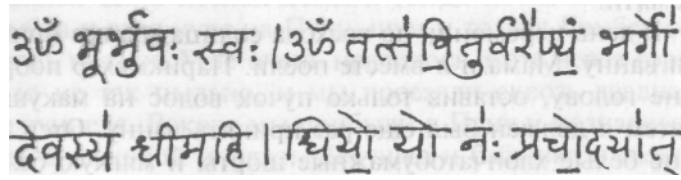 ॐ भूर्भुवः स्वः । ॐ तत्स॑वि॒तुर्वरे॑ण्यं॒ भर्गो॑
दे॒वस्य॑ धीमहि । धियो॒ यो नः॑ प्रचो॒दया॑त्